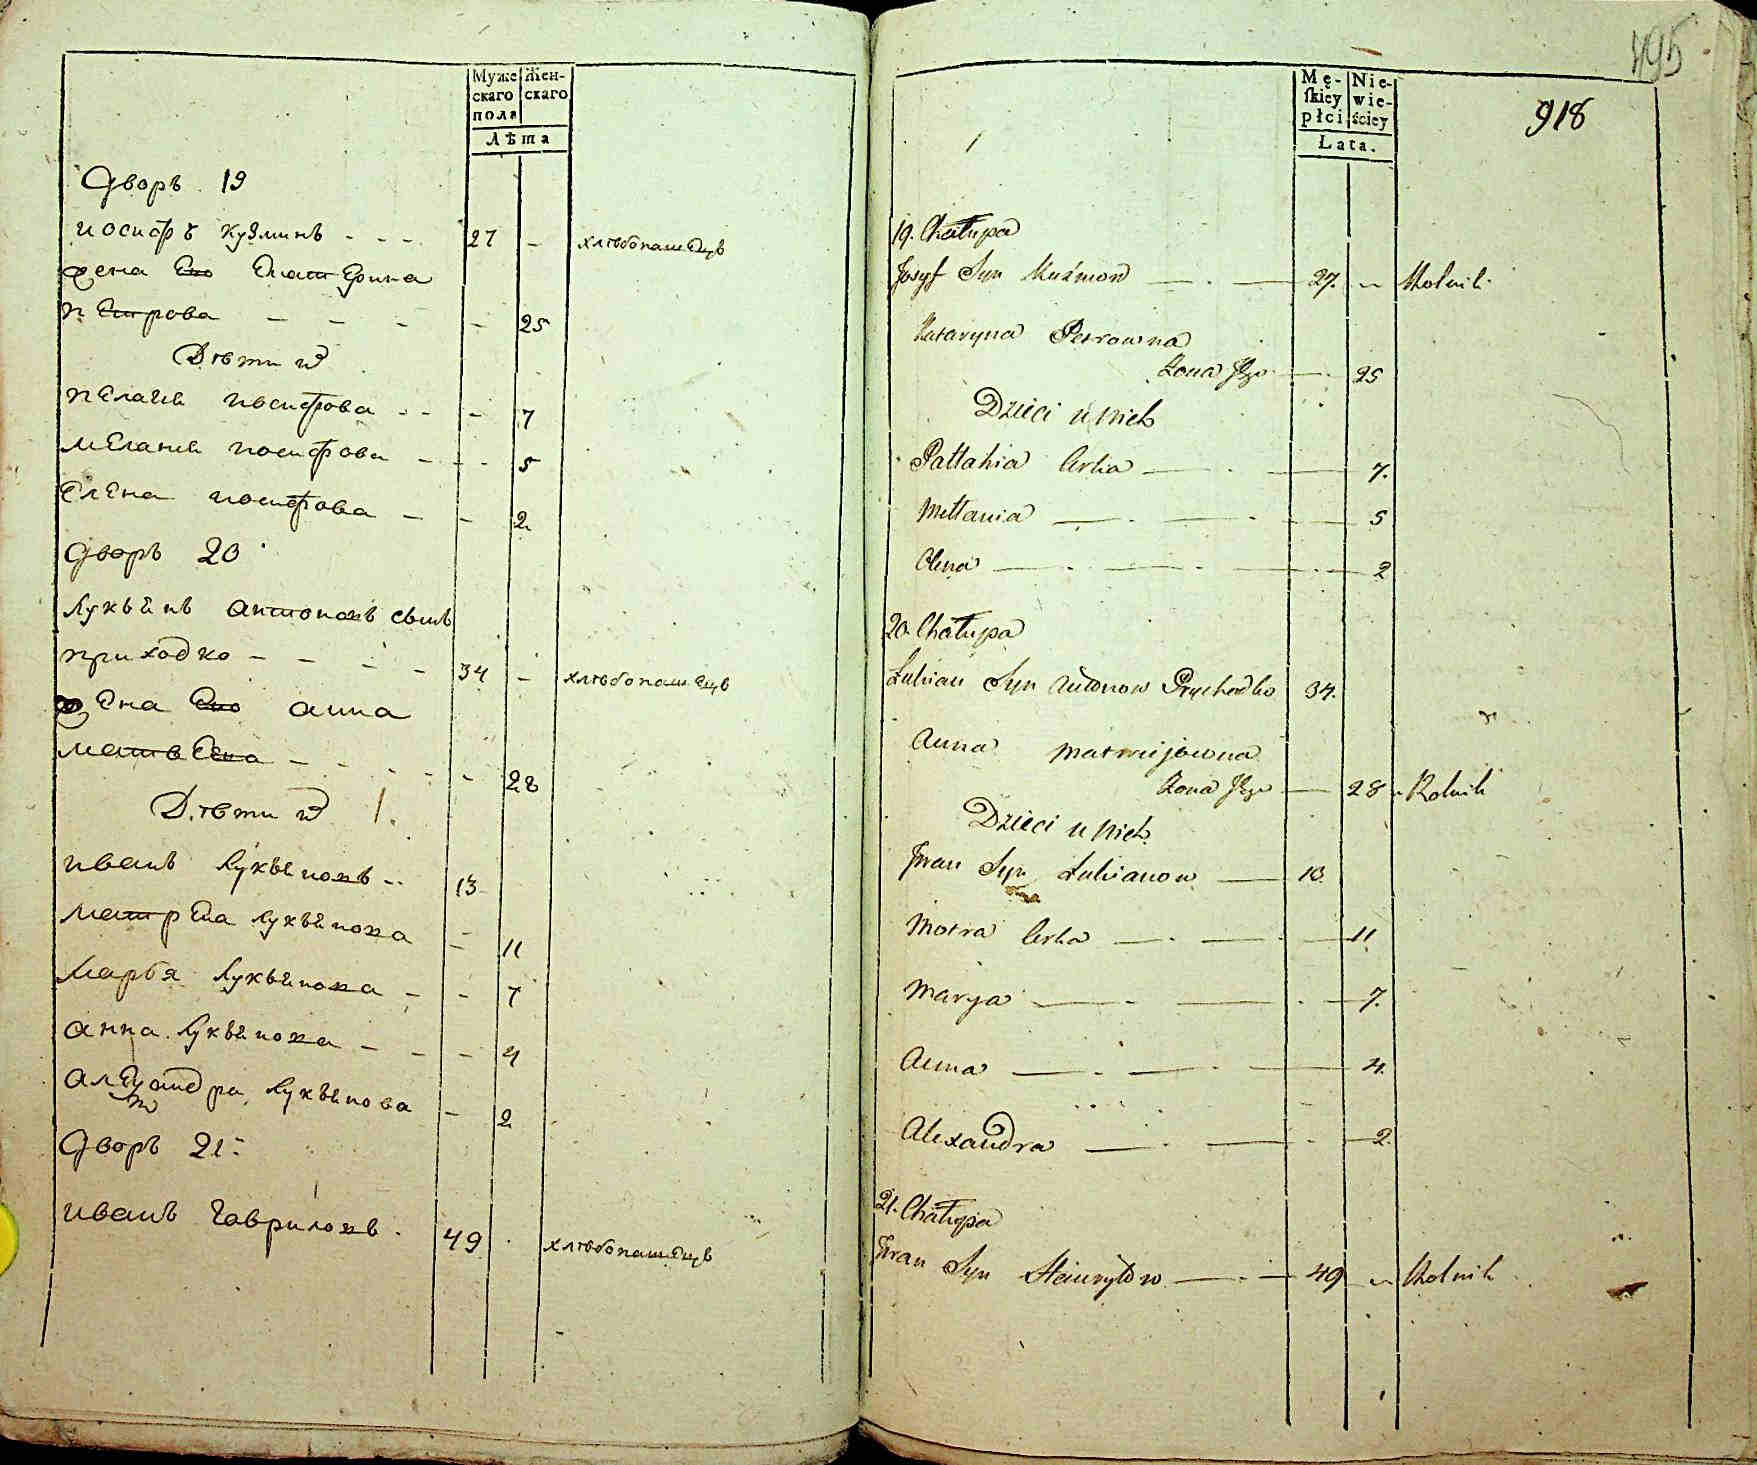 Муже
скаго
пола
Жен-
скаго
Лѣта
Дворъ 19
иосифъ кузминъ - - - 27 - хлѣбопашецъ
жена Его Екатерина
петрова - - - - 25
Дѣти
пелагеа иосифова - - - 7
меланиа иосифова - - - 5
Елена иосифова - - 2
Дворъ 20
лукъянъ антоновъ сынъ
приходко - - - - 34 - хлѣбопашецъ
жена Его анна
матвеева - - - - - - 28
Дѣти
иванъ лукъяновъ - - 13
матрена лукъянова - 11
марья лукъянова - - 7
анна лукъянова - - - 4
александра лукъянова - 2
Дворъ 21
иванъ гавриловъ 49 хлѣбопашецъ
495
918
Mę-
skiey
płci
Nie-
wie-
ściey
Lata.
19. Chałupa
Josyf Syn Kuźmow 27. Rolnik
Kataryna Petrowna
Żona Jego 25
Dzieci u nich
Pałłahia Corka 7.
Mełłania 5
Olena 2
20. Chałupa
Łukian Syn Antonow Prychodko 34.
Anna Matwijowna
Żona Jego 28 Rolnik
Dzieci u nich
Iwan Syn Łukianow 13
Motra Corka 11
Marya 7.
Anna 4.
Alexandra 2.
21. Chałupa
Iwan Syn Hawryłow 49 Rolnik